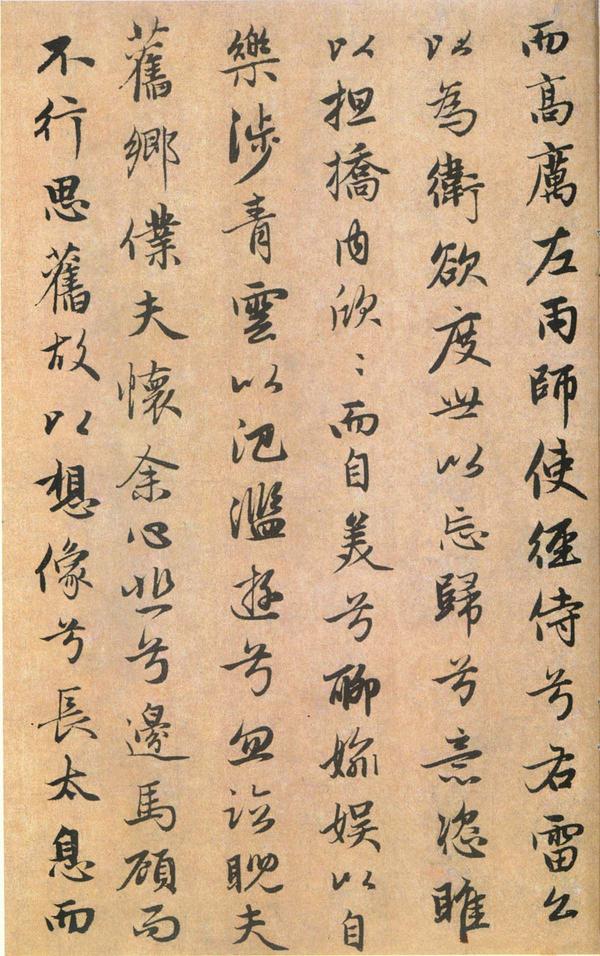 而高厲左雨師使徑侍兮右雷公
以為衛欲度世以忘歸兮意恣睢
以担撟内欣〻而自美兮聊媮娛以自
樂涉青雲以氾濫遊兮忽臨睨夫
舊鄉僕夫懷余心悲兮邊馬顧而
不行思舊故以想像兮長太息而